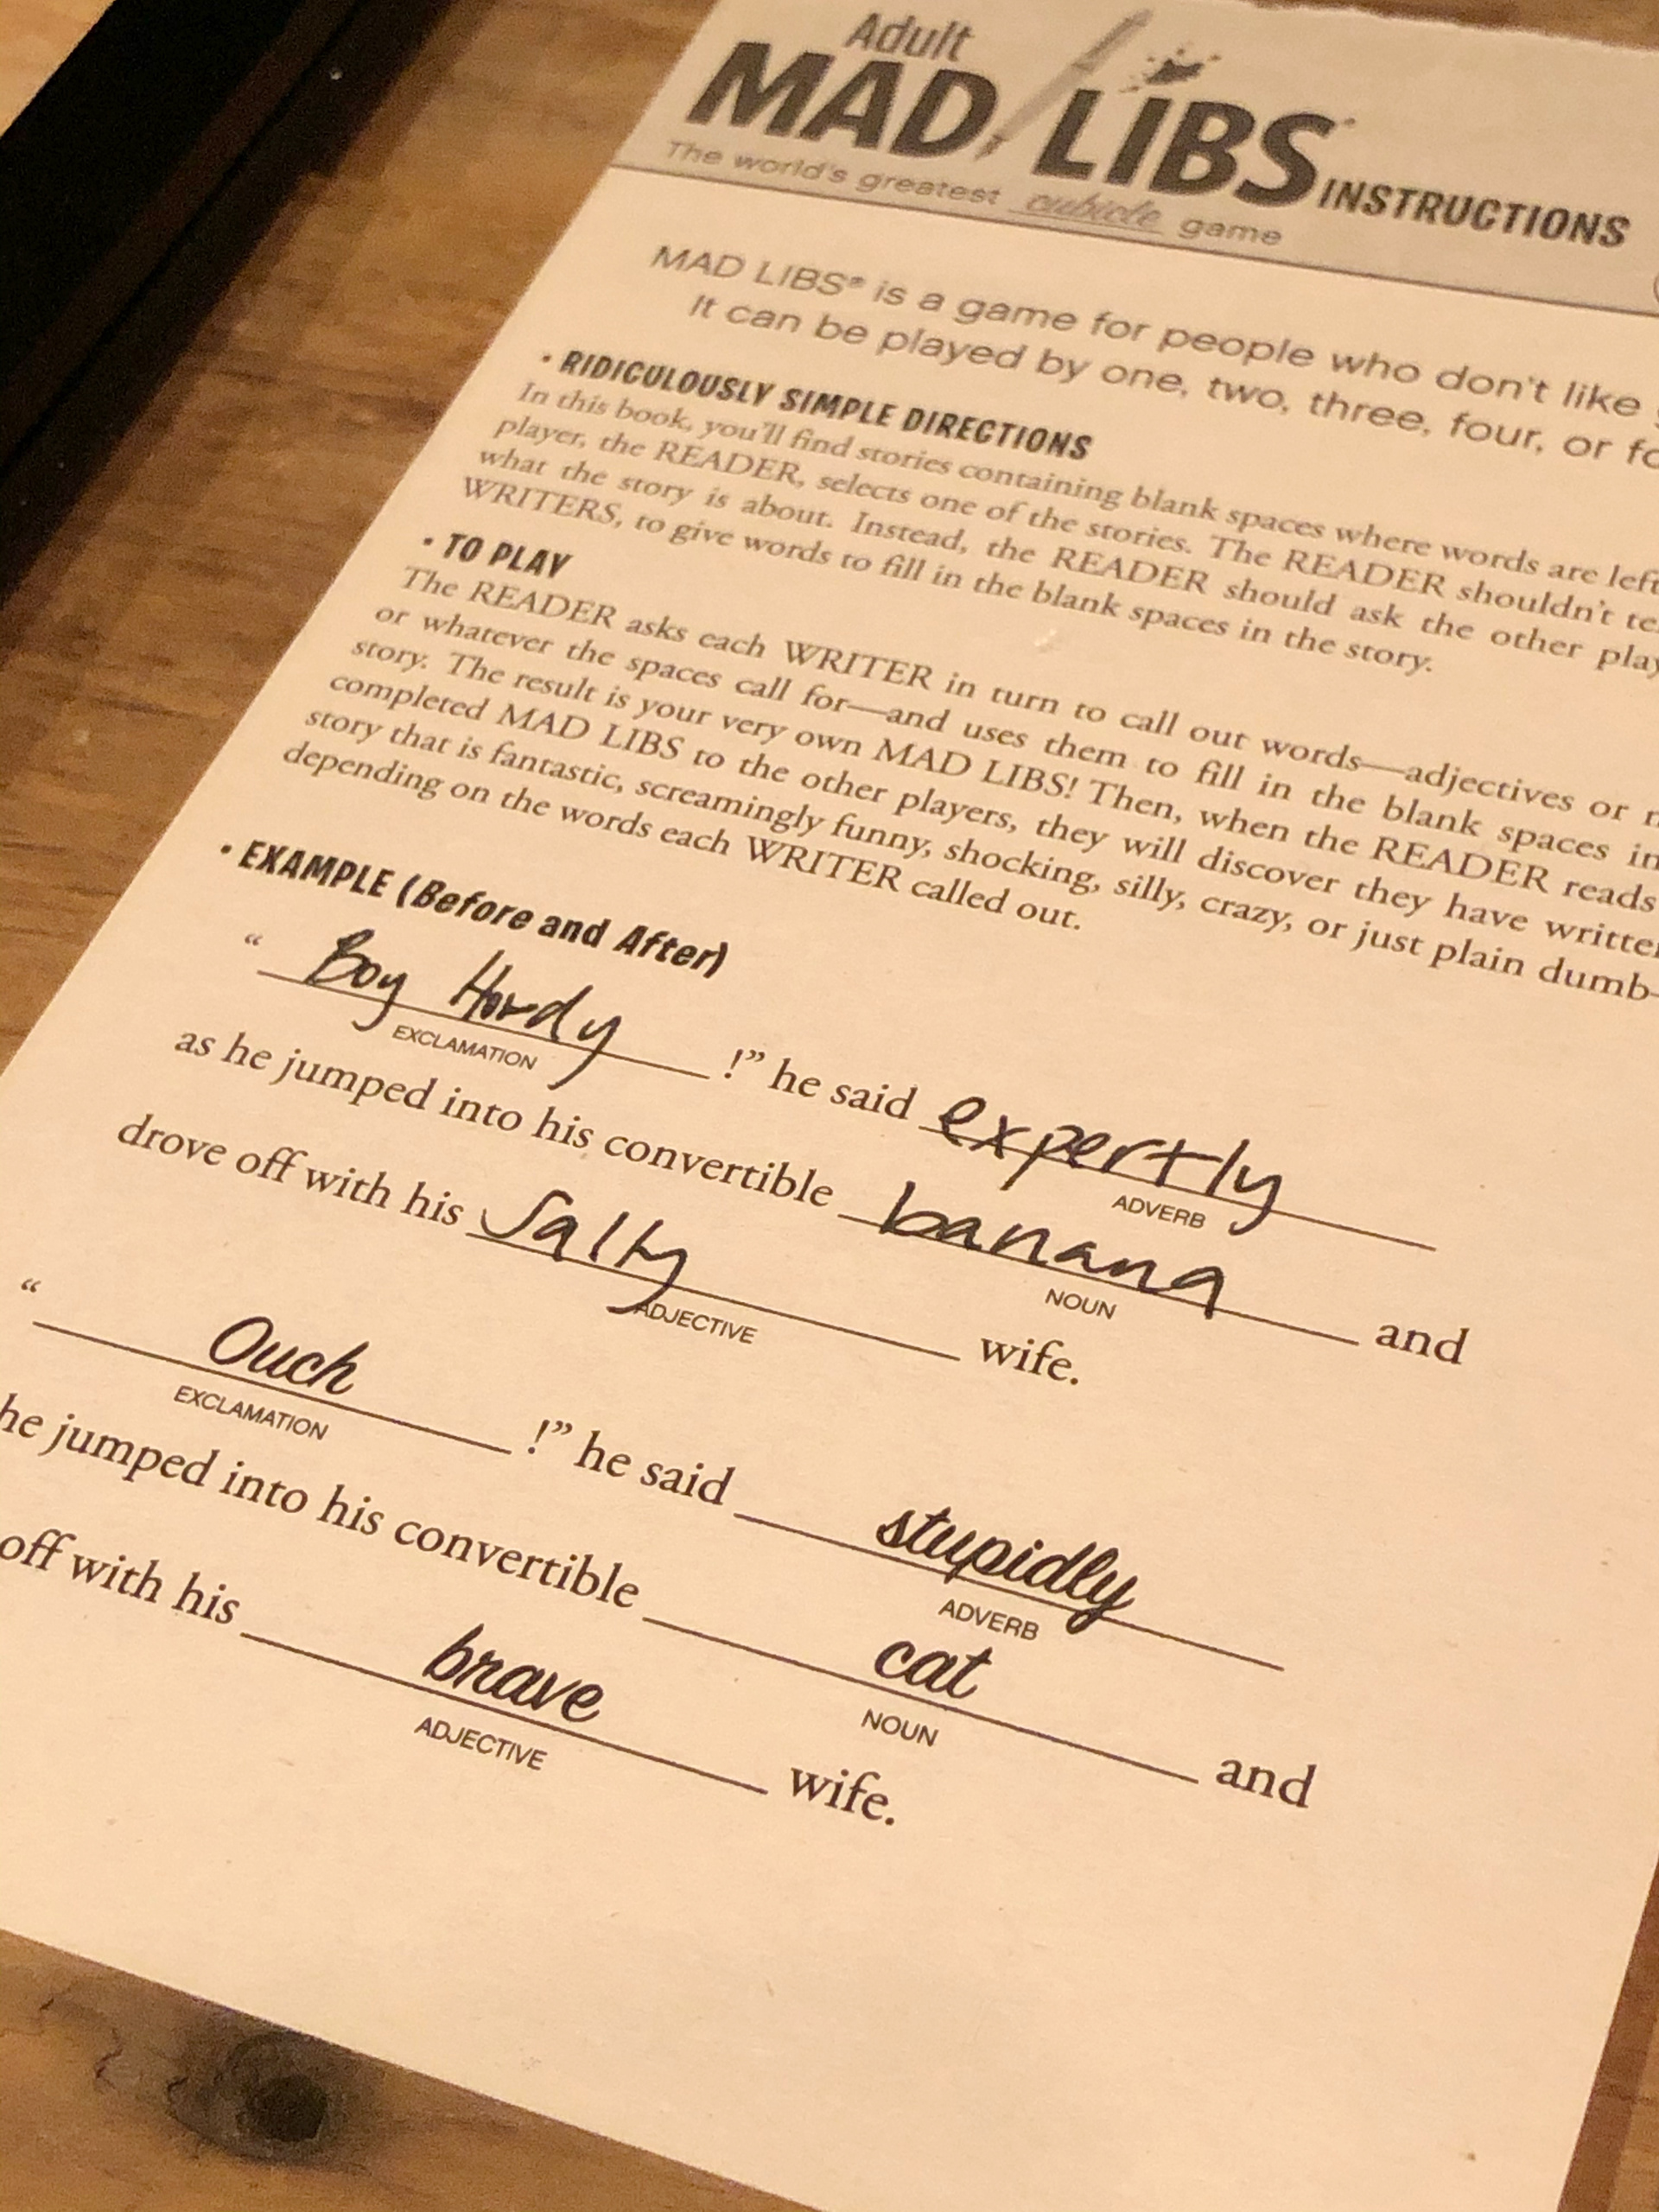 Adult
MAD LIBS® INSTRUCTIONS
The world's greatest cubicle game
MAD LIBS® is a game for people who don't like
It can be played by one, two, three, four, or
• RIDICULOUSLY SIMPLE DIRECTIONS
In this book, you'll find stories containing blank spaces where words are left
player, the READER, selects one of the stories. The READER shouldn't
what the story is about. Instead, the READER should ask the other
WRITERS, to give words to fill in the blank spaces in the story.
• TO PLAY
The READER asks each WRITER in turn to call out words—adjectives or
or whatever the spaces call for—and uses them to fill in the blank spaces in
story. The result is your very own MAD LIBS! Then, when the READER reads
completed MAD LIBS to the other players, they will discover they have
story that is fantastic, screamingly funny, shocking, silly, crazy, or just plain dumb—
depending on the words each WRITER called out.
• EXAMPLE (Before and After)
“Boy Howdy!” he said expertly
EXCLAMATION ADVERB
as he jumped into his convertible banana and
NOUN
drove off with his Salty wife.
ADJECTIVE
“Ouch!” he said stupidly
EXCLAMATION ADVERB
he jumped into his convertible cat and
NOUN
off with his brave wife.
ADJECTIVE